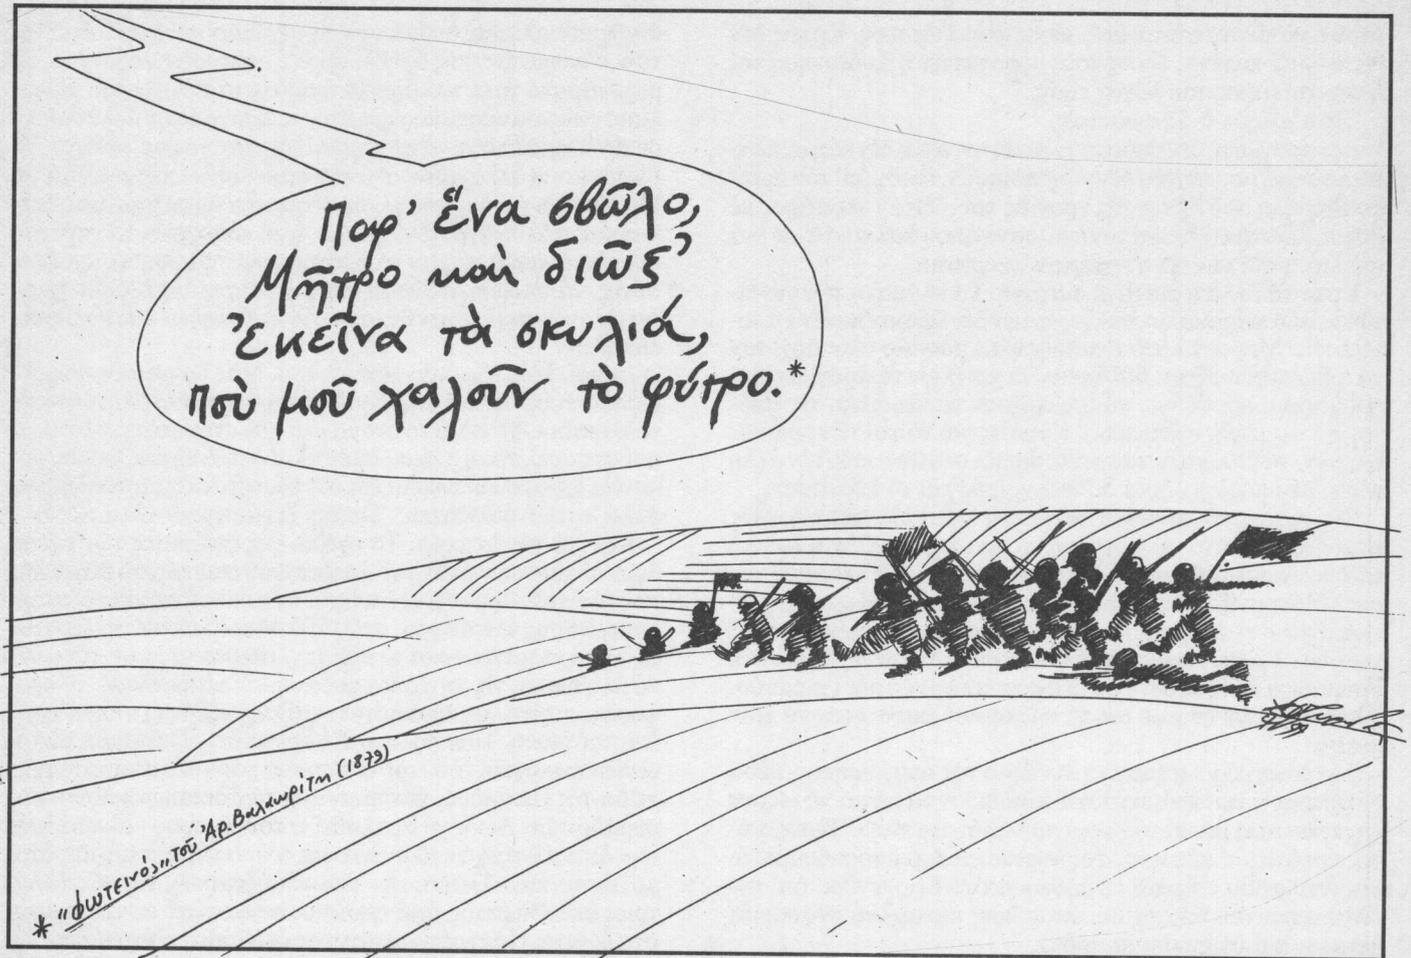 Παρ' ἕνα σβῶλο,
Μῆτρο καὶ διῶξ'
ἐκεῖνα τὰ σκυλιά,
ποὺ μοῦ χαλοῦν τὸ φύτρο.*
* "Φωτεινός" τοῦ Ἀρ. Βαλαωρίτη (1879)